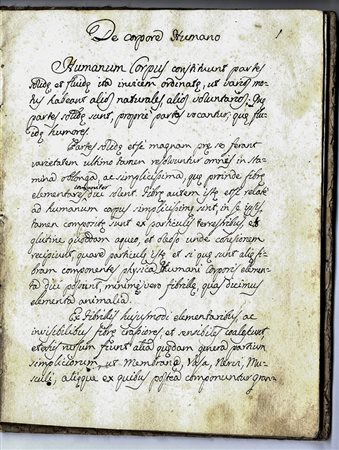 De corpore Humano
1
Humanum Corpus constituunt partes
solidę et fluidę ita invicem ordinatę, ut varios mo¬
tus habeant alios naturales, alios voluntarios. Quę
partes solidę sunt, proprie partes vocantur; quę flu¬
idę humores.
Partes solidę etsi magnam prę se ferant
varietatem ultimo tamen resolvuntur omnes in sta¬
mina oblonga, ac simplicissima, quę proinde fibrę
elementares dici solent. Fibrę autem istę etsi relatę
ad humanum corpus simplicissimę sint, in se ipsis
tamen compositę sunt ex particulis terrestribus, et
glutine quodam aqueo, et oleoso unde cohęsionem
recipiunt, quare particulę istę et si quę sunt alię fi¬
bram componentes physica Humani Corporis elemen¬
ta dici possunt, minime vero fibrillę, quas dicimus
elementa animalia.
Ex fibrillis hujusmodi elementaribus ac
invisibilibus fibrę crassiores, et sensibiles coalescunt
ex his rursum fiunt alia quędam genera partium
simpliciorum, ut Membranę, Vasa, Nervi, Mu¬
sculi; alięque ex quibus postea componuntur